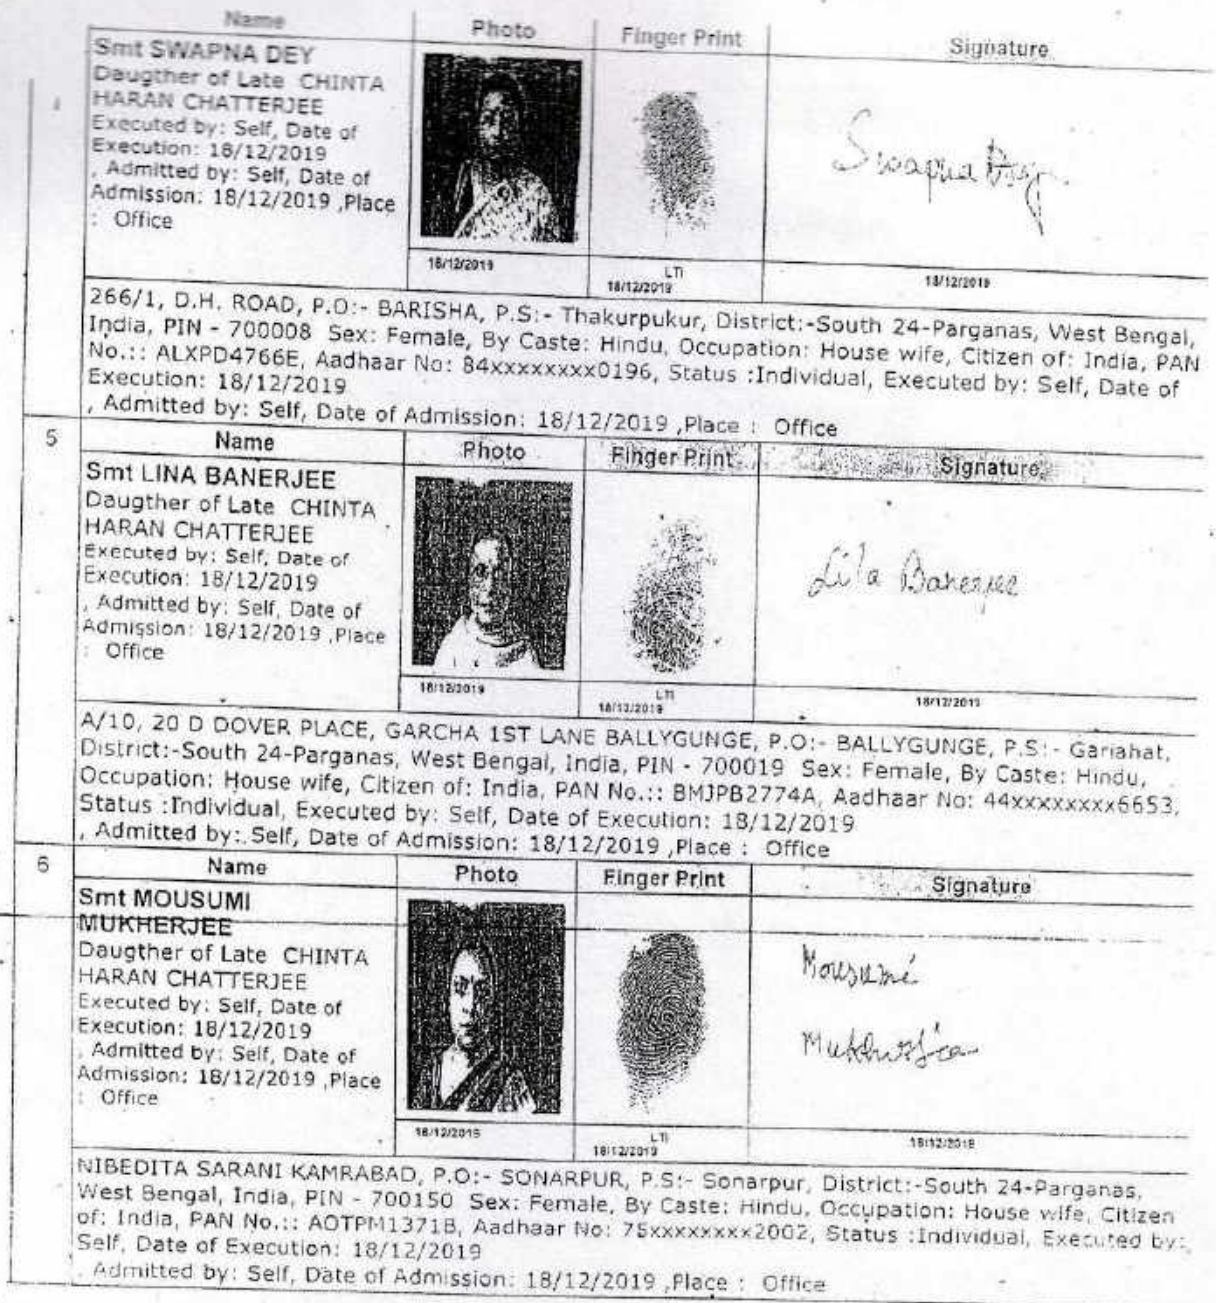 Name Photo Finger Print Signature
Smt SWAPNA DEY
Daugther of Late CHINTA
HARAN CHATTERJEE
Executed by: Self, Date of
Execution: 18/12/2019
, Admitted by: Self, Date of
Admission: 18/12/2019 ,Place
: Office
Swapna Dey
18/12/2019 LTI 18/12/2019 18/12/2019
266/1, D.H. ROAD, P.O:- BARISHA, P.S:- Thakurpukur, District:-South 24-Parganas, West Bengal,
India, PIN - 700008 Sex: Female, By Caste: Hindu, Occupation: House wife, Citizen of: India, PAN
No.:: ALXPD4766E, Aadhaar No: 84xxxxxxxx0196, Status :Individual, Executed by: Self, Date of
Execution: 18/12/2019
, Admitted by: Self, Date of Admission: 18/12/2019 ,Place : Office
5 Name Photo Finger Print Signature
Smt LINA BANERJEE
Daugther of Late CHINTA
HARAN CHATTERJEE
Executed by: Self, Date of
Execution: 18/12/2019
, Admitted by: Self, Date of
Admission: 18/12/2019 ,Place
: Office
Banerjee
18/12/2019 LTI 18/12/2019 18/12/2019
A/10, 20 D DOVER PLACE, GARCHA 1ST LANE BALLYGUNGE, P.O:- BALLYGUNGE, P.S:- Gariahat,
District:-South 24-Parganas, West Bengal, India, PIN - 700019 Sex: Female, By Caste: Hindu,
Occupation: House wife, Citizen of: India, PAN No.:: BMJPB2774A, Aadhaar No: 44xxxxxxxx6653,
Status :Individual, Executed by: Self, Date of Execution: 18/12/2019
, Admitted by: Self, Date of Admission: 18/12/2019 ,Place : Office
6 Name Photo Finger Print Signature
Smt MOUSUMI
MUKHERJEE
Daugther of Late CHINTA
HARAN CHATTERJEE
Executed by: Self, Date of
Execution: 18/12/2019
, Admitted by: Self, Date of
Admission: 18/12/2019 ,Place
: Office
Mousumi
Mukherjee
18/12/2019 LTI 18/12/2019 18/12/2019
NIBEDITA SARANI KAMRABAD, P.O:- SONARPUR, P.S:- Sonarpur, District:-South 24-Parganas,
West Bengal, India, PIN - 700150 Sex: Female, By Caste: Hindu, Occupation: House wife, Citizen
of: India, PAN No.:: AOTPM1371B, Aadhaar No: 75xxxxxxxx2002, Status :Individual, Executed by:
Self, Date of Execution: 18/12/2019
, Admitted by: Self, Date of Admission: 18/12/2019 ,Place : Office